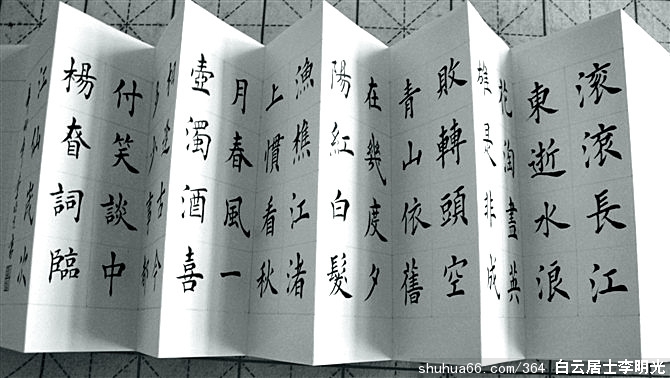 滚滚長江
東逝水浪
花淘盡英
雄是非成
敗轉頭空
青山依舊
在幾度夕
陽紅白髮
漁樵江渚
上慣看秋
月春風一
壺濁酒喜
相逢古今
多少事都
付笑談中
楊眘詞臨
江仙
shuhua66.com/364 白云居士李明光